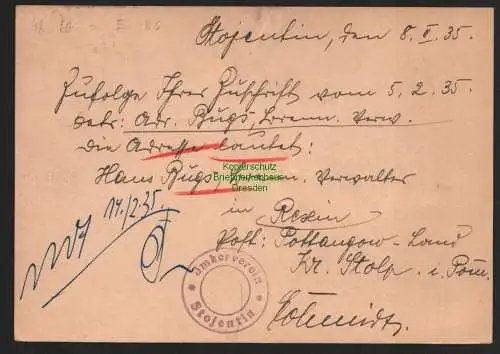 Stojentin, den 8. II. 35.
Zufolge Ihrer Zuschrift vom 5.2.35
betr: Adr. Bugs, Brenn. Verw.
die Adresse lautet:
Kopierschutz
Briefmarkenhaus
Dresden
Hans Bugs, Brenn. Verwalter
in Rexin
Post: Pottangow-Land
Kr. Stolp i. Pom.
14./2.35.
Imkerverein
Stojentin
Schmidt.